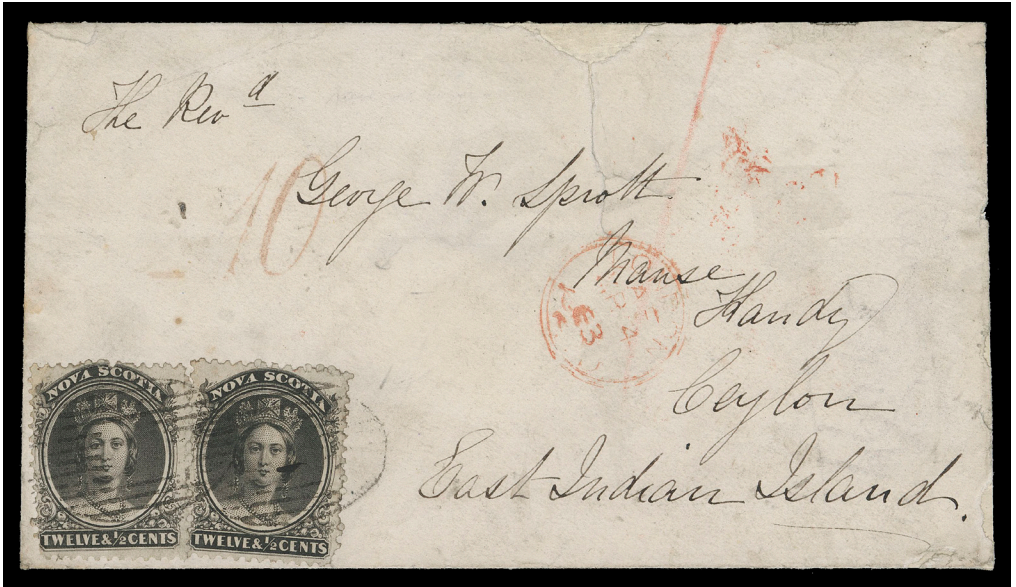 The Revd
10
George W. Sprott
Manse
Kandy
Ceylon
East Indian Island.
63
NOVA SCOTIA
TWELVE & ½ CENTS
NOVA SCOTIA
TWELVE & ½ CENTS